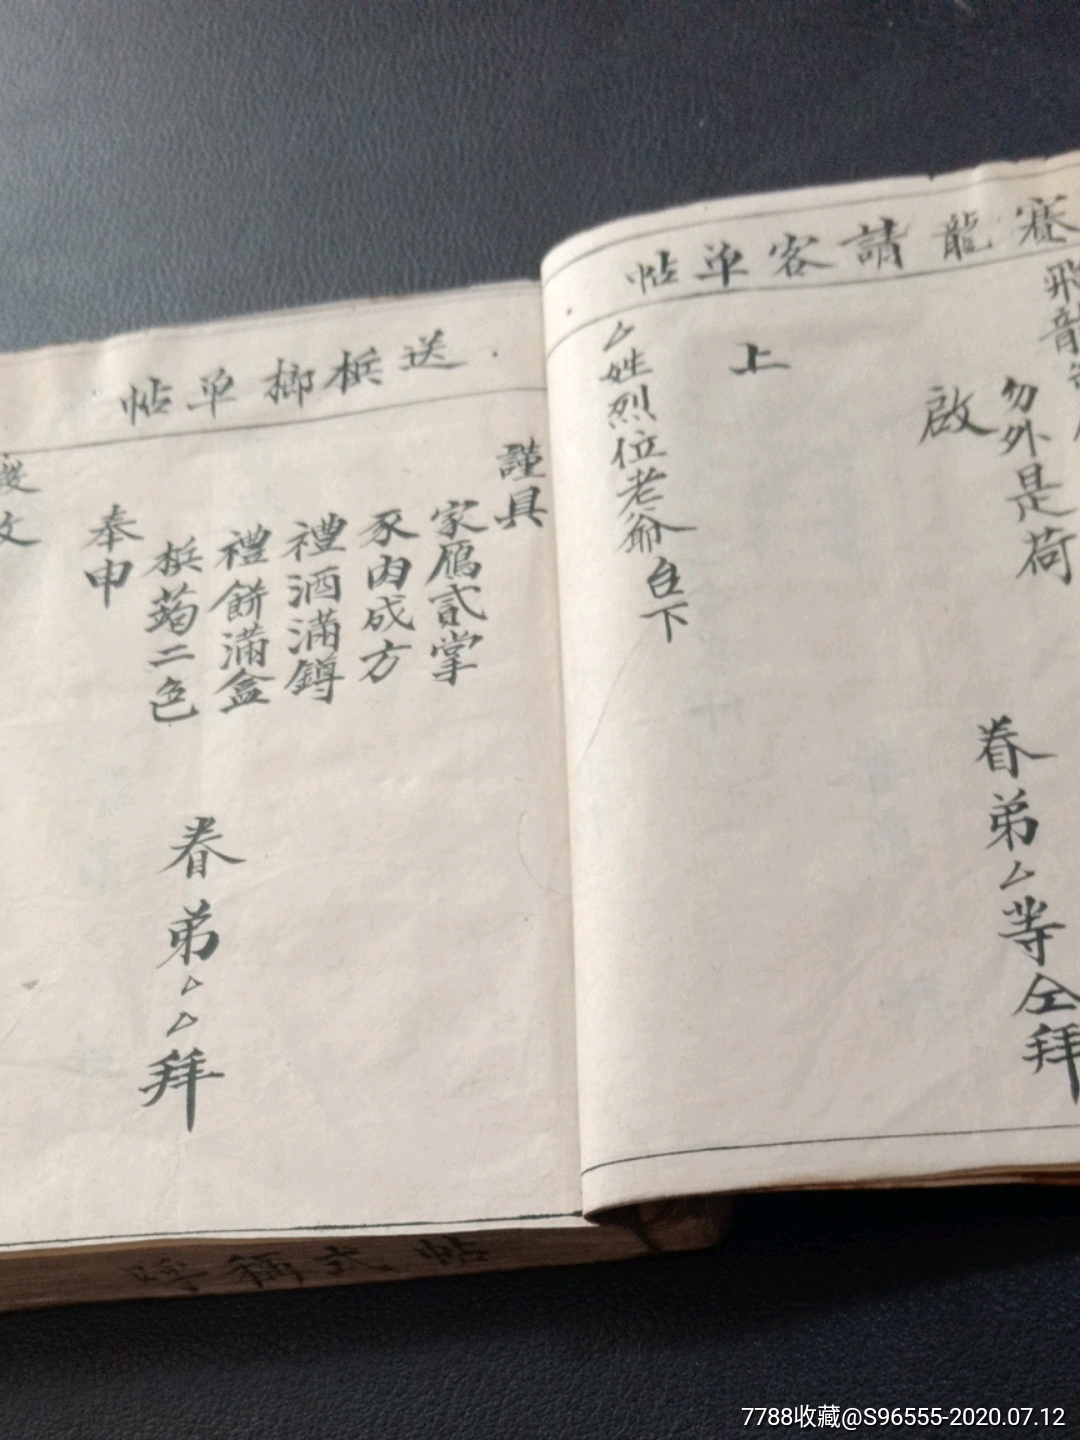 賽龍請客单帖
飛龍
勿外是荷
啟
眷弟厶等仝拜
上
厶姓烈位老爺台下
送梹榔单帖
謹具
家雁貳掌
豕肉成方
禮酒滿罇
禮餅滿盒
梹蒟二色
奉申
眷弟厶厶拜
文
呼稱式帖
7788收藏@S96555-2020.07.12